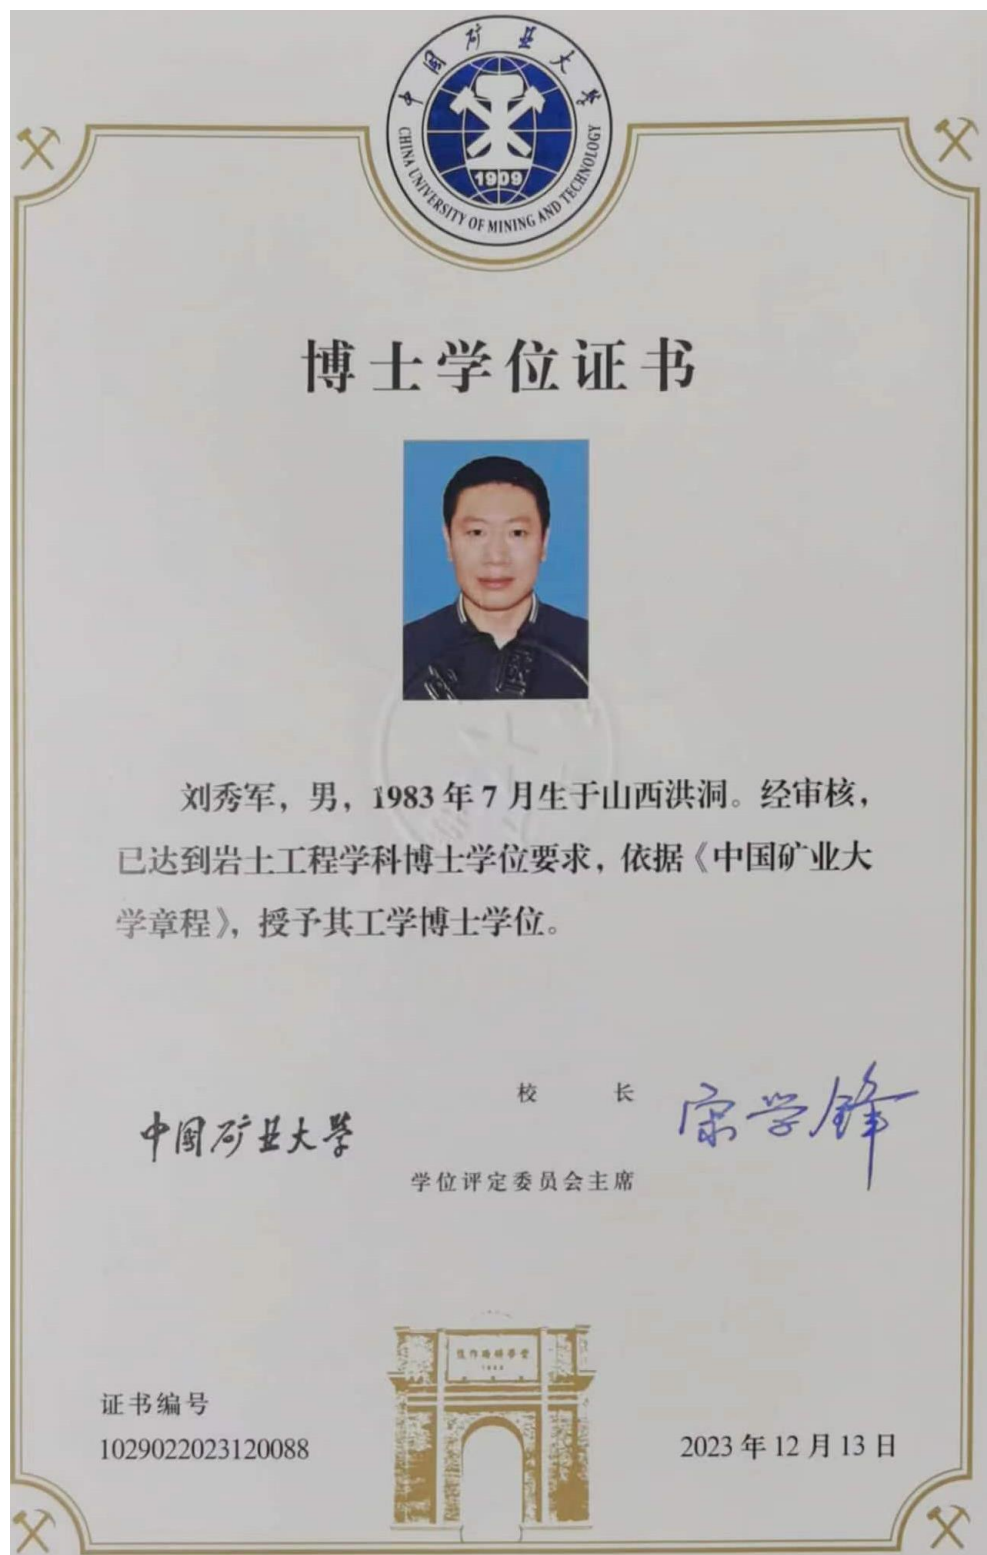 中国矿业大学
CHINA UNIVERSITY OF MINING AND TECHNOLOGY
1909
博士学位证书
刘秀军，男，1983年7月生于山西洪洞。经审核，
已达到岩土工程学科博士学位要求，依据《中国矿业大
学章程》，授予其工学博士学位。
中国矿业大学
校 长
宋学锋
学位评定委员会主席
证书编号
1029022023120088
2023年12月13日